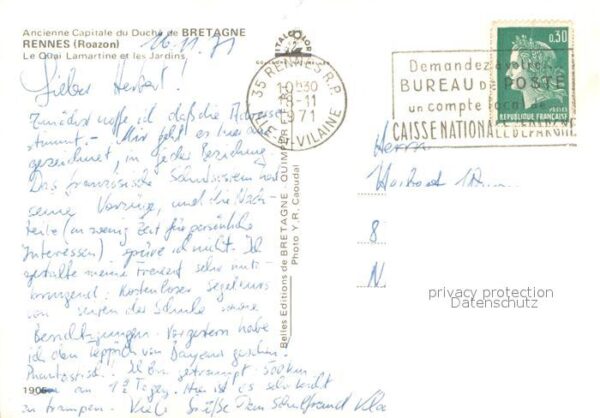 Ancienne Capitale du Duché de BRETAGNE
RENNES (Roazon)
Le Quai Lamartine et les Jardins
16.11.71
Lieber Herbert!
Zunächst hoffe ich daß die Adresse
stimmt. - Mir geht es hier
gezeichnet, in jeder Beziehung.
Das französische Schulsystem hat
seine Vorzüge, und die Nach-
teile (zu wenig Zeit für persönliche
Interessen) spüre ich nicht. Ich
gestalte meine Freizeit sehr nutz-
bringend: Kostenloser Segelkurs
von der Schule
Besichtigungen. Vorgestern habe
ich den Teppich von Bayeux gesehen.
Phantastisch! Ich bin getrampt. 500km
an 1½ Tagen. Hier ist es sehr leicht
zu trampen. Viele Grüße Dein Schulfreund
1906
Belles Editions de BRETAGNE - QUIMPER
Photo Y.R. Caoudal
35 RENNES R.P.
10H30
16-11
1971
ILLE-ET-VILAINE
Demandez à votre
BUREAU DE POSTE
un compte
CAISSE NATIONALE D'EPARGNE
0,30
POSTES
REPUBLIQUE FRANCAISE
Herrn
8
N
privacy protection
Datenschutz